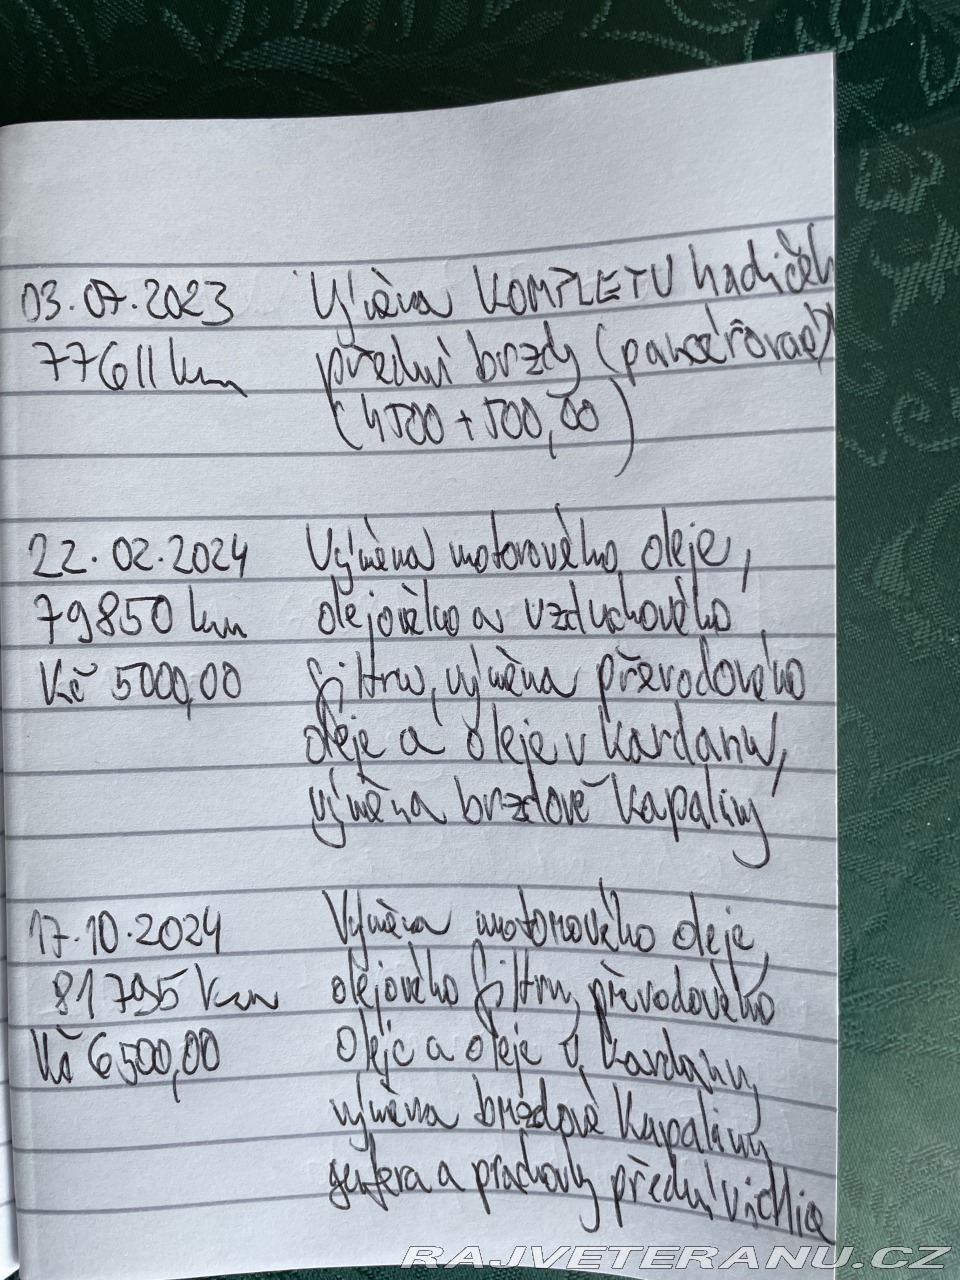 03.07.2023 Výměna KOMPLETU hadiček
77611 km přední brzdy (pancéřované)
(4500 + 500,00)
22.02.2024 Výměna motorového oleje,
79850 km olejového a vzduchového
Kč 5000,00 filtru, výměna převodového
oleje a oleje v kardanu,
výměna brzdové kapaliny
17.10.2024 Výměna motorového oleje,
81795 km olejového filtru, převodového
Kč 6500,00 oleje a oleje v kardanu,
výměna brzdové kapaliny
a prachovky přední vidlice
RAJVETERANU.CZ